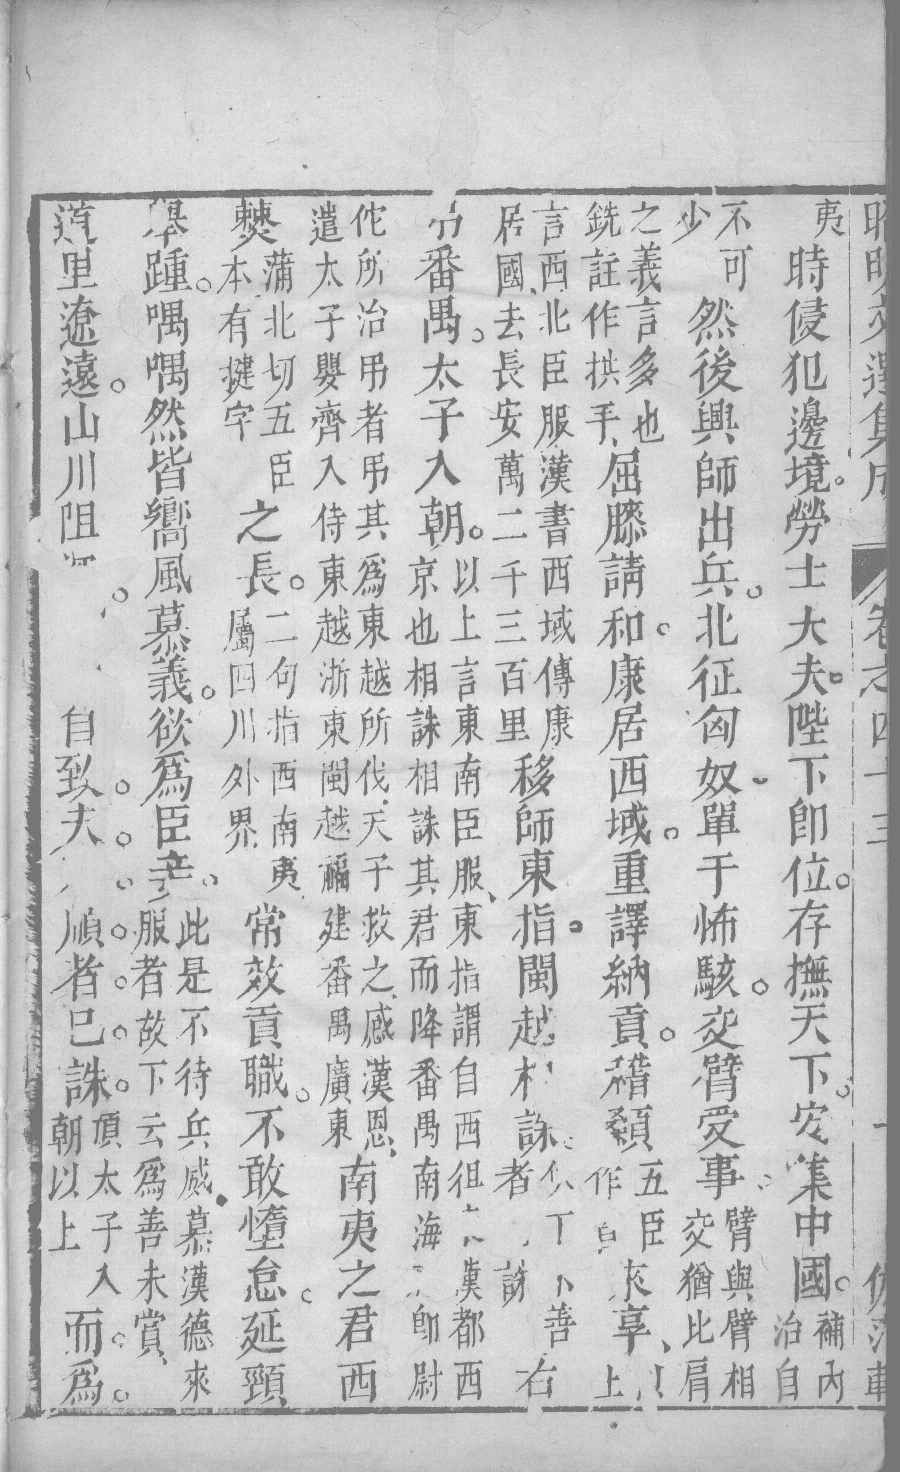 昭明文選集成 卷之四十三 一
夷時侵犯邊境。勞士大夫。陛下即位。存撫天下。安集中國。補內治自
不可少然後興師出兵。北征匈奴。單于怖駭。交臂受事。臂與臂相交猶比肩
之義言多也銑註作拱手屈膝請和。康居西域。重譯納貢。稽顙五臣作來享、上
言西北臣服漢書西域傳康居國去長安萬二千三百里移師東指。閩越相誅不善者誅右
弔番禺。太子入朝。以上言東南臣服、東指謂自西徂漢都西京也相誅相誅其君而降番禺南海郡尉
佗所治弔者弔其為東越所伐、天子救之、感漢恩、遣太子嬰齊入侍東越浙東閩越福建番禺廣東南夷之君西
僰蒲北切五臣本有揵字之長。二句指西南夷屬四川外界常效貢職。不敢墮怠。延頸
舉踵。喁喁然皆嚮風慕義。欲為臣妾。此是不待兵威慕漢德來服者故下云為善未賞、
道里遼遠。山川阻自致夫順者已誅。頂太子入朝以上而為